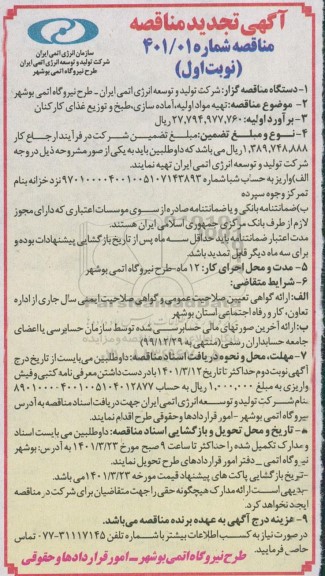 آگهی تجدید مناقصه
مناقصه شماره ۴۰۱/۰۱
(نوبت اول)
سازمان انرژی اتمی ایران
شرکت تولید و توسعه انرژی اتمی ایران
طرح نیروگاه اتمی بوشهر
۱- دستگاه مناقصه گزار: شرکت تولید و توسعه انرژی اتمی ایران - طرح نیروگاه اتمی بوشهر
۲- موضوع مناقصه: تهیه مواد اولیه، آماده سازی، طبخ و توزیع غذای کارکنان
۳- برآورد اولیه: ۲۷,۷۹۴,۹۷۷,۷۶۰ ریال
۴- نوع و مبلغ تضمین: مبلغ تضمین شرکت در فرآیند ارجاع کار
۱,۳۸۹,۷۴۸,۸۸۸ ریال می‌باشد که داوطلبین باید به یکی از صور مشروحه ذیل در وجه
شرکت تولید و توسعه انرژی اتمی ایران تهیه نمایند.
الف) واریز به حساب شبا شماره ۹۷۰۱۰۰۰۰۴۰۰۱۰۰۵۱۰۷۱۴۳۸۹۳ نزد خزانه بنام
تمرکز وجوه سپرده
ب) ضمانتنامه بانکی و یا ضمانتنامه صادره از سوی موسسات اعتباری که دارای مجوز
لازم از طرف بانک مرکزی جمهوری اسلامی ایران هستند.
مدت اعتبار ضمانتنامه باید حداقل سه ماه پس از تاریخ بازگشایی پیشنهادات بوده و
برای سه ماه دیگر قابل تمدید باشد.
۵- مدت و محل اجرای کار: ۱۲ ماه - طرح نیروگاه اتمی بوشهر
۶- شرایط متقاضی:
الف: ارائه گواهی تعیین صلاحیت عمومی و گواهی صلاحیت ایمنی سال جاری از اداره
تعاون، کار و رفاه اجتماعی استان بوشهر
ب: ارائه آخرین صورتهای مالی حسابرسی شده توسط سازمان حسابرسی یا اعضای
جامعه حسابداران رسمی (منتهی به ۹۹/۱۲/۲۹)
۷- مهلت، محل و نحوه دریافت اسناد مناقصه: داوطلبین می‌بایست از تاریخ درج
آگهی نوبت دوم حداکثر تا تاریخ ۱۴۰۱/۳/۱۲ با در دست داشتن معرفی نامه کتبی و فیش
واریزی به مبلغ ۱,۰۰۰,۰۰۰ ریال به حساب ۸۹۰۱۰۰۰۰۴۰۰۱۰۰۵۱۰۴۰۱۲۸۷۷
بنام شرکت تولید و توسعه انرژی اتمی ایران جهت دریافت اسناد مناقصه به آدرس
نیروگاه اتمی بوشهر - امور قراردادها و حقوقی طرح اقدام نمایند.
۸- تاریخ و محل تحویل و بازگشایی اسناد مناقصه: داوطلبین می‌بایست اسناد
و مدارک تکمیل شده را حداکثر تا ساعت ۹ صبح مورخ ۱۴۰۱/۳/۲۳ به آدرس: بوشهر
نیروگاه اتمی _ دفتر امور قراردادهای طرح تحویل نمایند.
-تاریخ بازگشایی پاکت های پیشنهاد قیمت مورخه ۱۴۰۱/۳/۲۳ می‌باشد.
-بدیهی است ارائه مدارک هیچگونه حقی را جهت متقاضیان برای شرکت در مناقصه
ایجاد نخواهد کرد.
۹- هزینه درج آگهی به عهده برنده مناقصه می‌باشد.
در صورت نیاز به کسب اطلاعات بیشتر با شماره تلفن ۳۱۱۱۷۱۴۵-۰۷۷ تماس
حاصل فرمایید.
طرح نیروگاه اتمی بوشهر - امور قراردادها و حقوقی